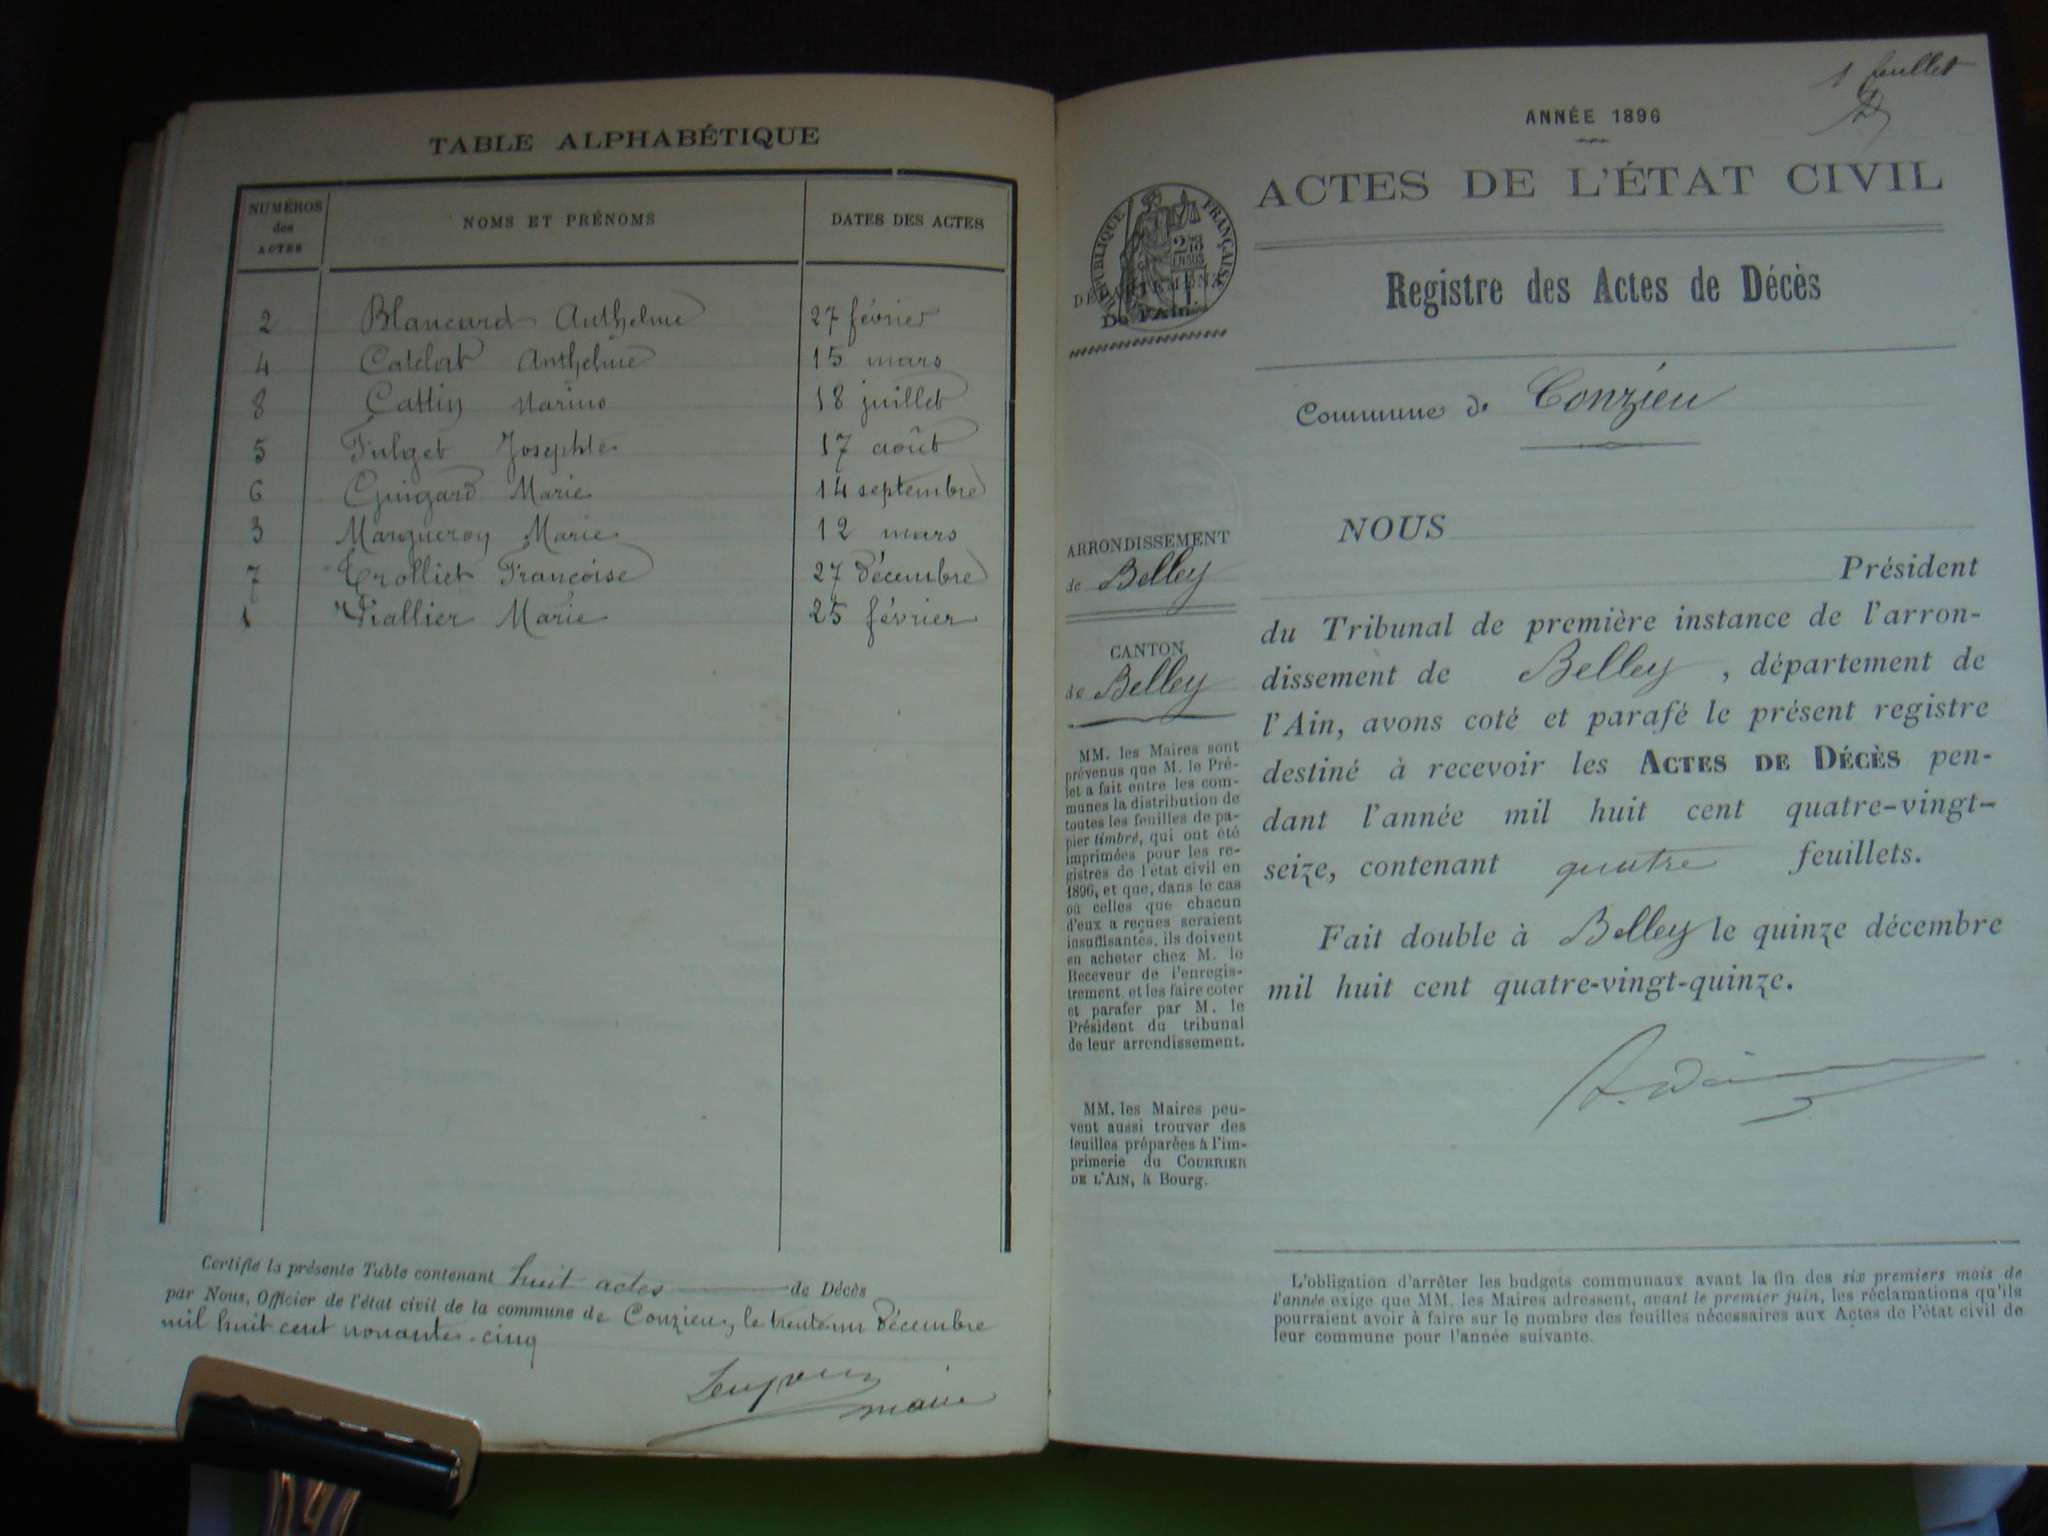 TABLE ALPHABÉTIQUE
NUMÉROS
des
ACTES
NOMS ET PRÉNOMS
DATES DES ACTES
2 Blancard Anthelme 27 février
4 Catelat Anthelme 15 mars
8 Cattin Marino 18 juillet
5 Fulget Josephte 17 août
6 Guingard Marie 14 septembre
3 Margueron Marie 12 mars
7 Trolliet Françoise 27 décembre
1 Viallier Marie 25 février
Certifié la présente Table contenant huit actes de Décès
par Nous, Officier de l'état civil de la commune de Conzieu, le trente un Décembre
mil huit cent nonante-cinq
maire
1 feuillet
ANNÉE 1896
ACTES DE L'ÉTAT CIVIL
RÉPUBLIQUE FRANÇAISE
DÉPARTEMENT
De l'Ain
Registre des Actes de Décès
Commune de Conzieu
ARRONDISSEMENT
de Belley
CANTON
de Belley
MM. les Maires sont
prévenus que M. le Pré-
fet a fait entre les com-
munes la distribution de
toutes les feuilles de pa-
pier timbré, qui ont été
imprimées pour les re-
gistres de l'état civil en
1896, et que, dans le cas
où celles que chacun
d'eux a reçues seraient
insuffisantes, ils doivent
en acheter chez M. le
Receveur de l'enregis-
trement, et les faire coter
et parafer par M. le
Président du tribunal
de leur arrondissement.
MM. les Maires peu-
vent aussi trouver des
feuilles préparées à l'im-
primerie du COURRIER
DE L'AIN, à Bourg.
NOUS
Président
du Tribunal de première instance de l'arron-
dissement de Belley, département de
l'Ain, avons coté et parafé le présent registre
destiné à recevoir les ACTES DE DÉCÈS pen-
dant l'année mil huit cent quatre-vingt-
seize, contenant quatre feuillets.
Fait double à Belley le quinze décembre
mil huit cent quatre-vingt-quinze.
L'obligation d'arrêter les budgets communaux avant la fin des six premiers mois de
l'année exige que MM. les Maires adressent, avant le premier juin, les réclamations qu'ils
pourraient avoir à faire sur le nombre des feuilles nécessaires aux Actes de l'état civil de
leur commune pour l'année suivante.